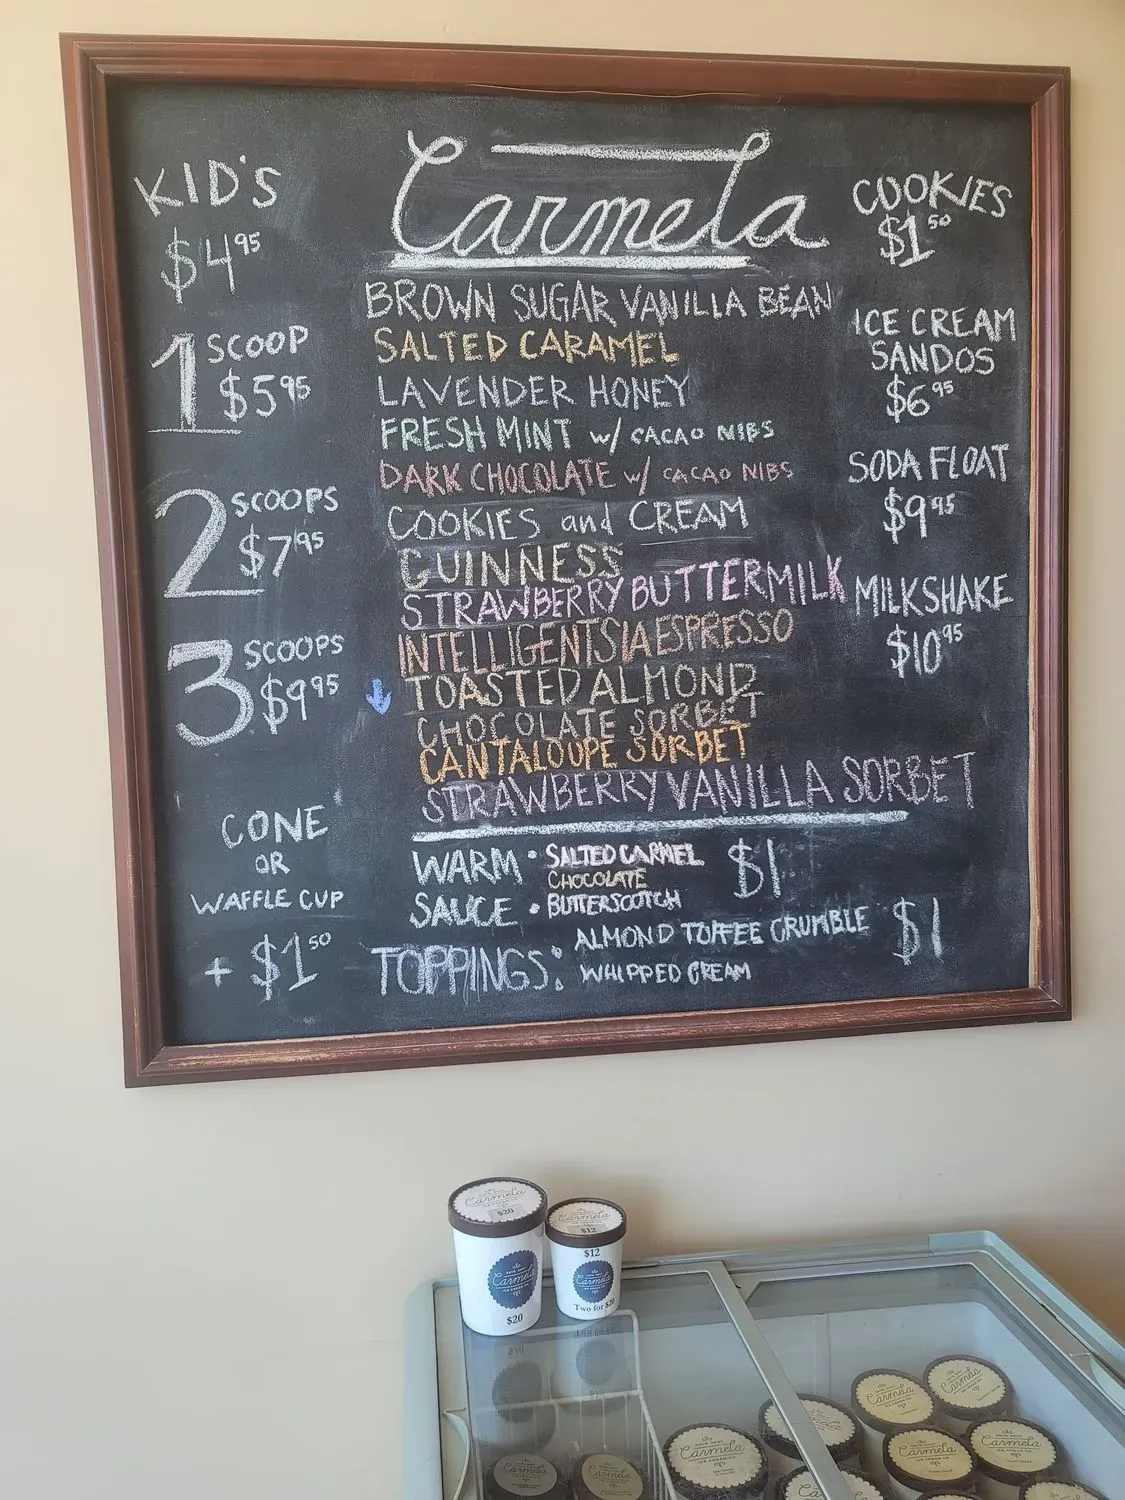 Carmela
KID'S
$4.95
1 SCOOP
$5.95
2 SCOOPS
$7.95
3 SCOOPS
$9.95
CONE
OR
WAFFLE CUP
+ $1.50
BROWN SUGAR VANILLA BEAN
SALTED CARAMEL
LAVENDER HONEY
FRESH MINT w/ CACAO NIBS
DARK CHOCOLATE w/ CACAO NIBS
COOKIES and CREAM
GUINNESS
STRAWBERRY BUTTERMILK
INTELLIGENTSIA ESPRESSO
TOASTED ALMOND
CHOCOLATE SORBET
CANTALOUPE SORBET
STRAWBERRY VANILLA SORBET
WARM SAUCE
• SALTED CARMEL
CHOCOLATE
• BUTTERSCOTCH
$1
TOPPINGS:
ALMOND TOFFEE CRUMBLE
WHIPPED CREAM
$1
COOKIES
$1.50
ICE CREAM
SANDOS
$6.95
SODA FLOAT
$9.95
MILKSHAKE
$10.95
Carmela
$20
Carmela
$20
Carmela
$12
$12
Carmela
Two for $20
Carmela
Carmela
Carmela
Carmela
Carmela
Carmela